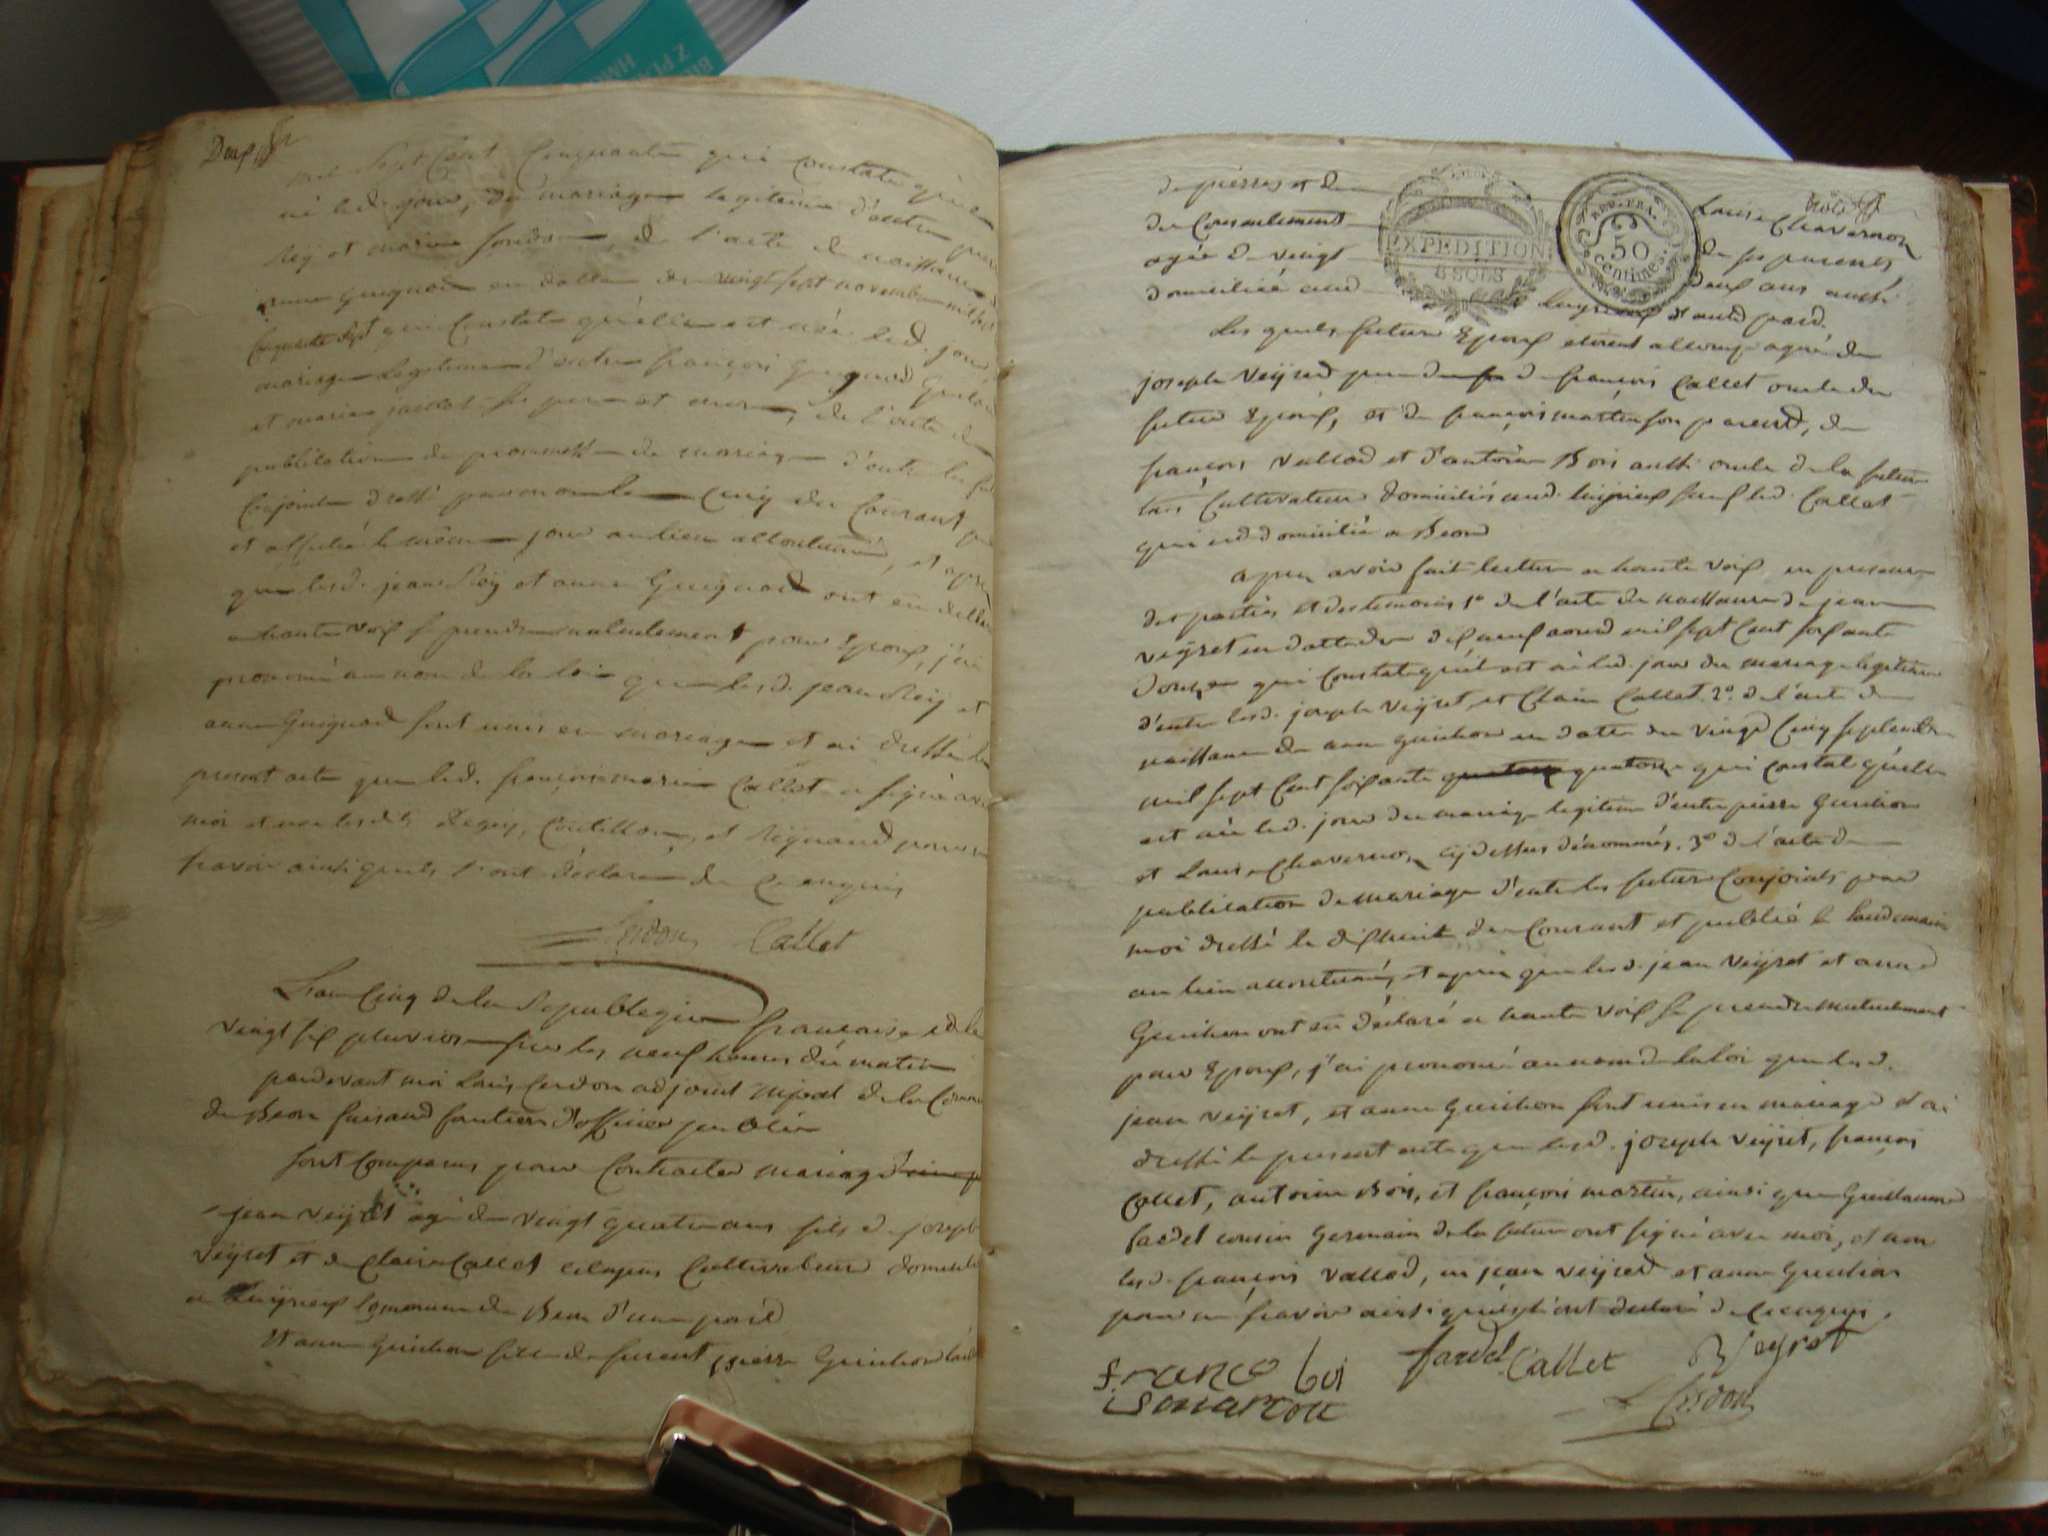 Deux
mil sept cent cinquante qui constate qu'il
né led. jour, du mariage legitime d'entre
Rey et marie, de l'acte de naissance
anne Guignard en datte du vingt sept novembre
cinquante sept qui constate qu'elle est née led. jour
mariage legitime d'entre françois Guignard
et marie jaillet ses pere et mere, de l'acte de
publication de promesse de mariage d'entre les
conjoints dressé par moi le cinq du courant
et affiché le même jour au lieu accoutumé, et après
que lesd. jean Rey et anne Guignard ont eu déclaré
a haute voix se prendre mutuellement pour Epoux, j'ai
prononcé au nom de la loi que lesd. jean Rey et
anne Guignard sont unis en mariage et ai dressé le
present acte que led. Callet a signé avec
moi et non lesdits et Reynaud pour ne
savoir ainsi qu'ils l'ont déclaré de ce enquis
Cerdon Callet
L'an Cinq de la Republique française et le
vingt six pluviose sur les neuf heures du matin
pardevant moi Louis Cerdon adjoint mpal de la Commune
de Beon faisant fonction d'officier public
sont comparus pour contracter mariage
jean veyret agé de vingt quatre ans fils de joseph
veyret et de Claire Callet citoyens Cultivateurs domiciliés
a Luyrieux Commune de Beon d'une part
Et anne Guichon fille de furent pierre Guichon
de pierres et de Louise Chavernon
du Consentement de ses parents
agée de vingt deux ans aussi
domiciliée aud. Luyrieux d'autre part.
EXPEDITION
8 SOLS
REP. FRA.
50
centimes
Les quels futurs Epoux etoient accompagnés de
joseph Veyred pere de françois Callet oncle du
futur Epoux, et de françois martin son parent, de
françois Vallod et d'antoine Bois aussi oncle de la future
tous Cultivateurs domiciliés aud. luyrieux sauf led. Callet
qui est domicilié a Beon
apres avoir fait lecture a haute voix en presence
des parties et des temoins 1° de l'acte de naissance de jean
veyret en datte du dix neuf aoust mil sept Cent soixante
douze qui constate qu'il est né led. jour du mariage legitime
d'entre lesd. joseph veyret et Claire Callet. 2° de l'acte de
naissance de anne guichon en datte du vingt Cinq septembre
mil sept Cent soixante quatorze quatorze qui constate qu'elle
est née led. jour du mariage legitime d'entre pierre Guichon
et Louise Chavernon cy dessus dénommés. 3° de l'acte de
publication de mariage d'entre les futurs Conjoints par
moi dressé le dixhuit du Courant et publié le landemain
au lieu accoutumé, et après que lesd. jean Veyret et anne
Guichon ont eu déclaré a haute voix se prendre mutuellement
pour Epoux, j'ai prononcé au nom de la loi que lesd.
jean veyret, et anne Guichon sont unis en mariage et ai
dressé le present acte que lesd. joseph veyret, françois
Callet, antoine Bois, et françois martin, ainsi que Guillaume
fardel cousin germain de la future ont signé avec moi, et non
lesd. françois vallod, ni jean veyred et anne Guichon
pour ne savoir ainsi qu'ils l'ont declaré de ce enquis.
franco boi fardel Callet Veyret
L Cerdon